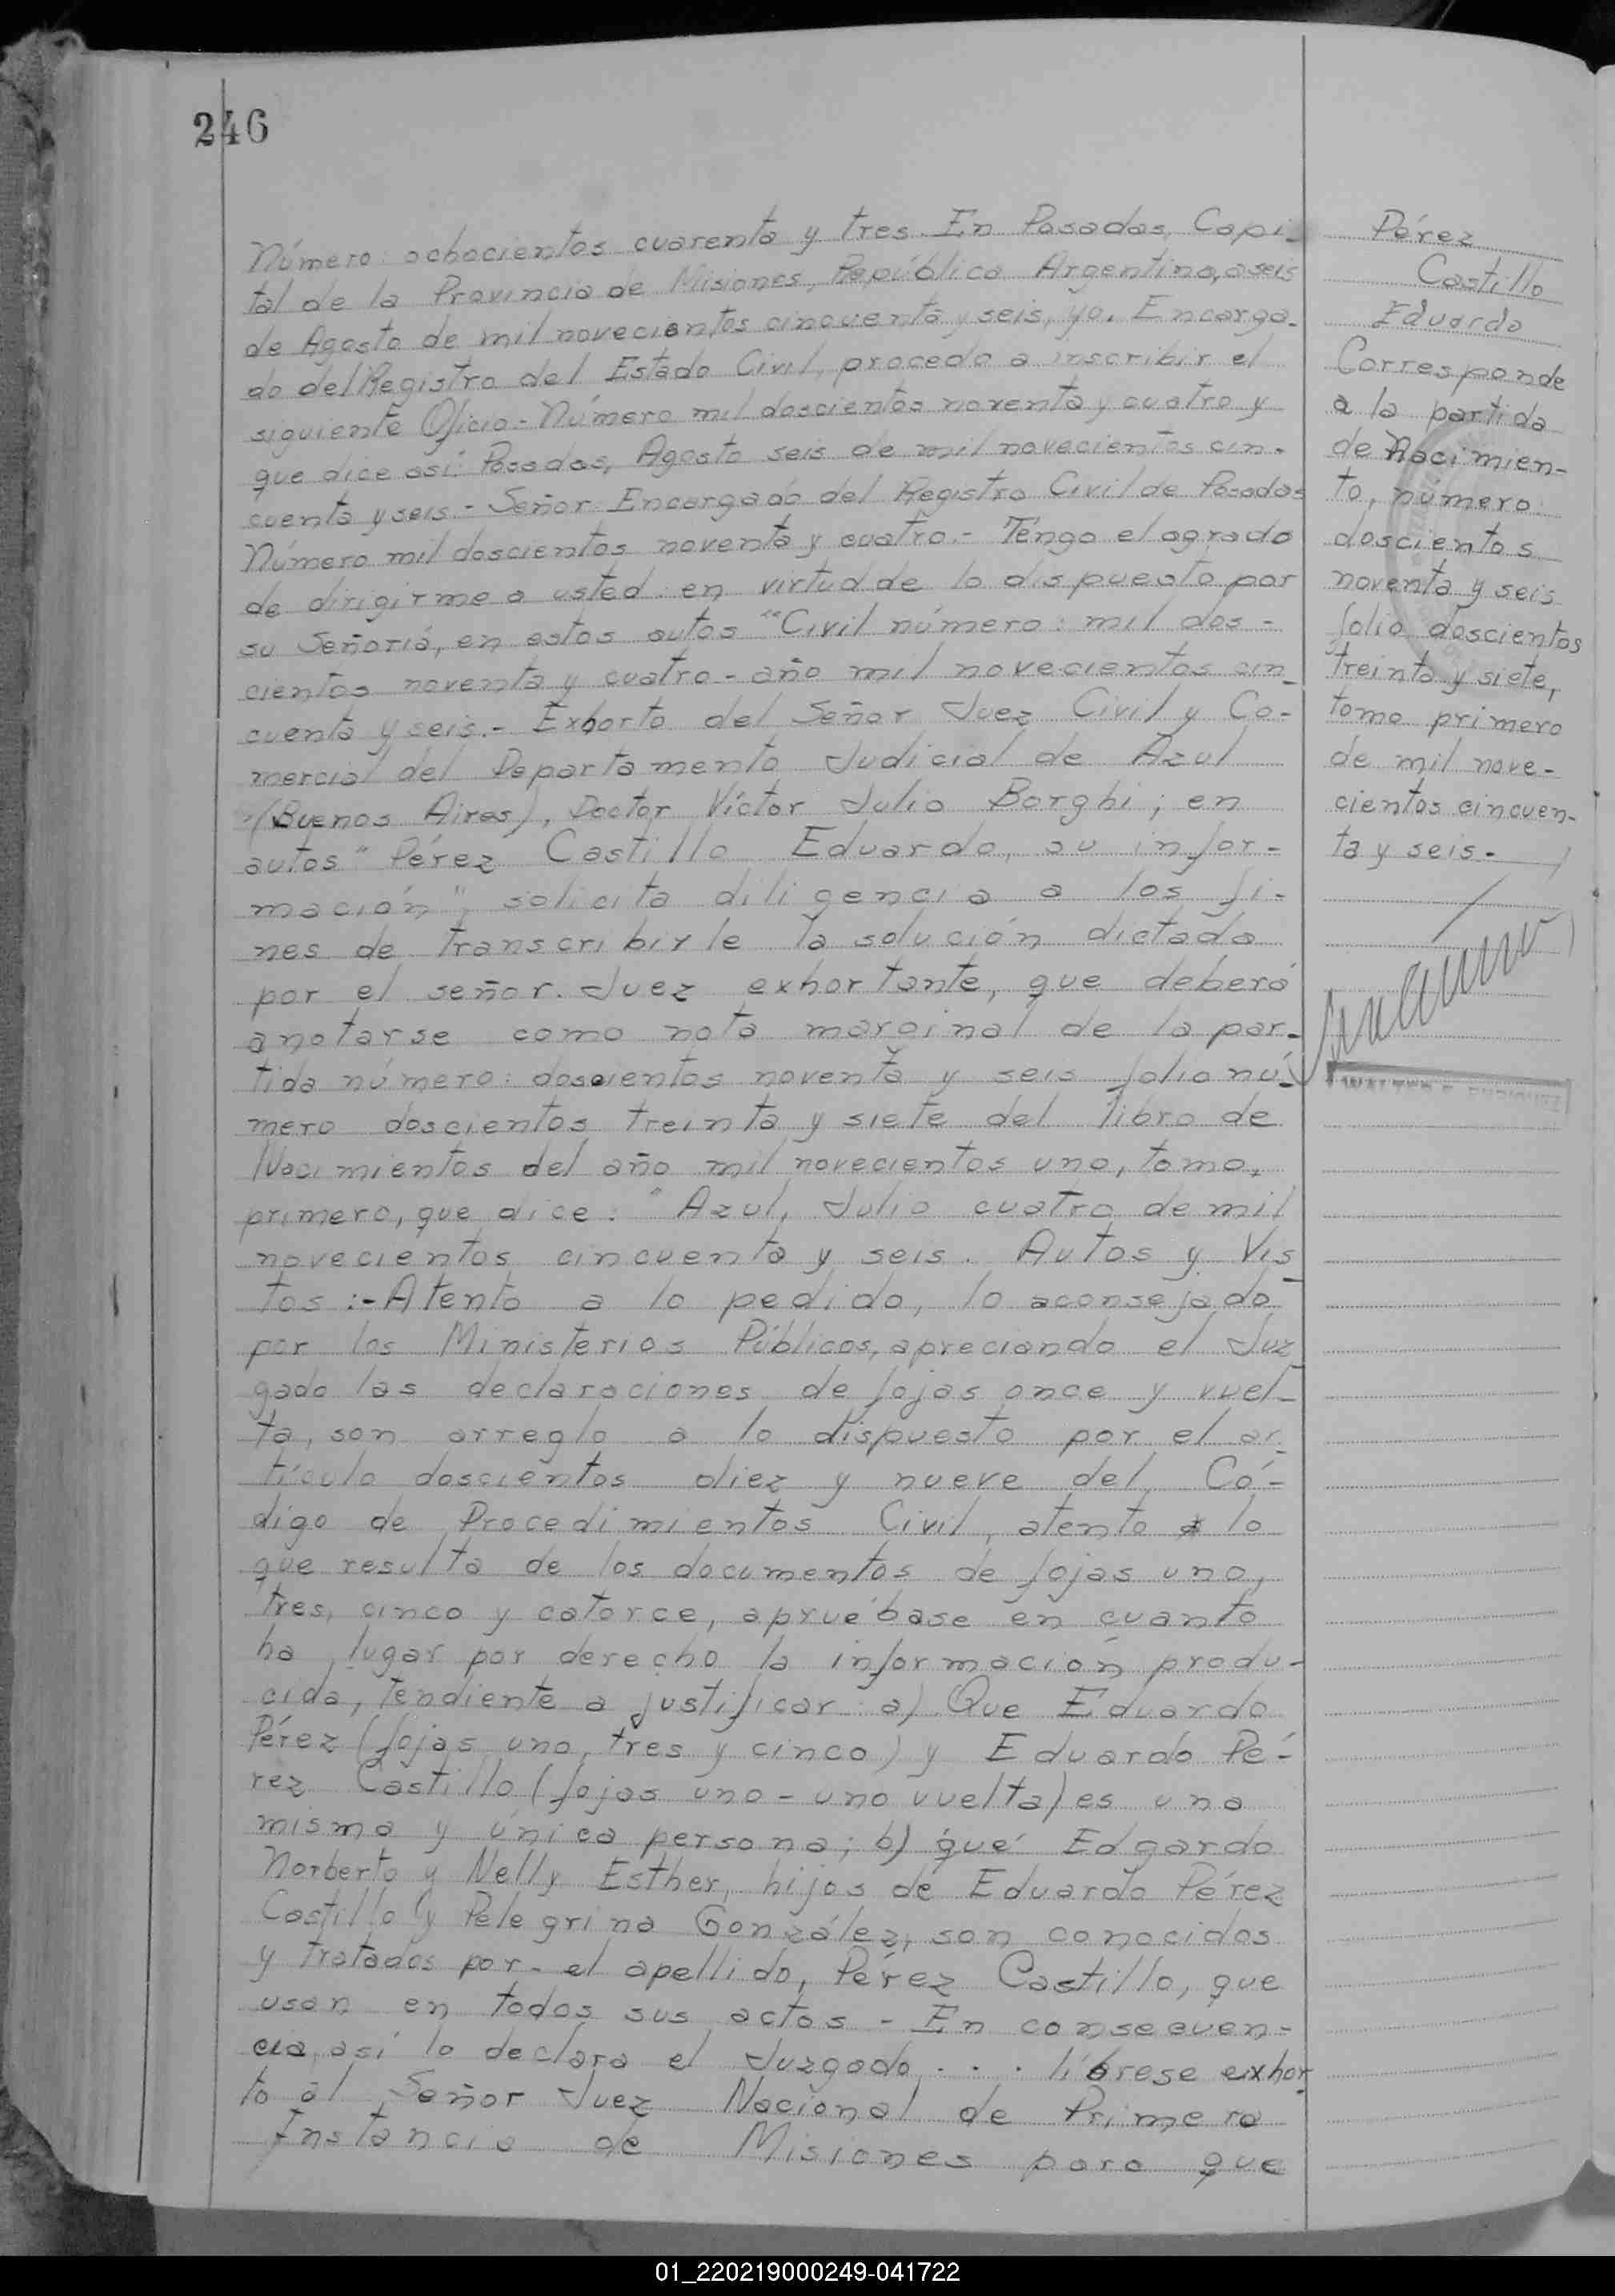 246
Número: ochocientos cuarenta y tres. En Posadas, Capi-
tal de la Provincia de Misiones, República Argentina, a seis
de Agosto de mil novecientos cincuenta y seis, yo, Encarga-
do del Registro del Estado Civil, procedo a inscribir el
siguiente Oficio - Número mil doscientos noventa y cuatro y
que dice así: Posadas, Agosto seis de mil novecientos cin-
cuenta y seis. - Señor Encargado del Registro Civil de Posadas
Número mil doscientos noventa y cuatro. - Tengo el agrado
de dirigirme a usted en virtud de lo dispuesto por
su Señoría, en estos autos "Civil número: mil dos-
cientos noventa y cuatro - año mil novecientos cin-
cuenta y seis. - Exhorto del Señor Juez Civil y Co-
mercial del Departamento Judicial de Azul
(Buenos Aires), Doctor Víctor Julio Borghi; en
autos "Pérez Castillo Eduardo, su infor-
mación", solicita diligencia a los fi-
nes de transcribirle la solución dictada
por el señor. Juez exhortante, que deberá
anotarse como nota marginal de la par-
tida número: doscientos noventa y seis folio nú-
mero doscientos treinta y siete del libro de
Nacimientos del año mil novecientos uno, tomo,
primero, que dice: "Azul, Julio cuatro de mil
novecientos cincuenta y seis. Autos y Vis
tos :- Atento a lo pedido, lo aconsejado
por los Ministerios Públicos, apreciando el Juz
gado las declaraciones de fojas once y vuel-
ta, son arreglo a lo dispuesto por el ar-
tículo doscientos diez y nueve del Có-
digo de Procedimientos Civil, atento a lo
que resulta de los documentos de fojas uno,
tres, cinco y catorce, apruébase en cuanto
ha lugar por derecho la información produ-
cida, tendiente a justificar: a) Que Eduardo
Pérez (fojas uno, tres y cinco) y Eduardo Pé-
rez Castillo (fojas uno - uno vuelta) es una
misma y única persona; b) qué Edgardo
Norberto y Nelly Esther, hijos de Eduardo Pérez
Castillo y Pelegrina González, son conocidos
y tratados por - el apellido, Pérez Castillo, que
usan en todos sus actos - En consecuen-
cia, así lo declara el Juzgado . . . líbrese exhor
to al Señor Juez Nacional de Primera
Instancia de Misiones para que
Pérez
Castillo
Eduardo
Corresponde
a la partida
de Nacimien-
to, número:
doscientos
noventa y seis
folio doscientos
treinta y siete,
tomo primero
de mil nove-
cientos cincuen-
ta y seis. -
01_220219000249-041722